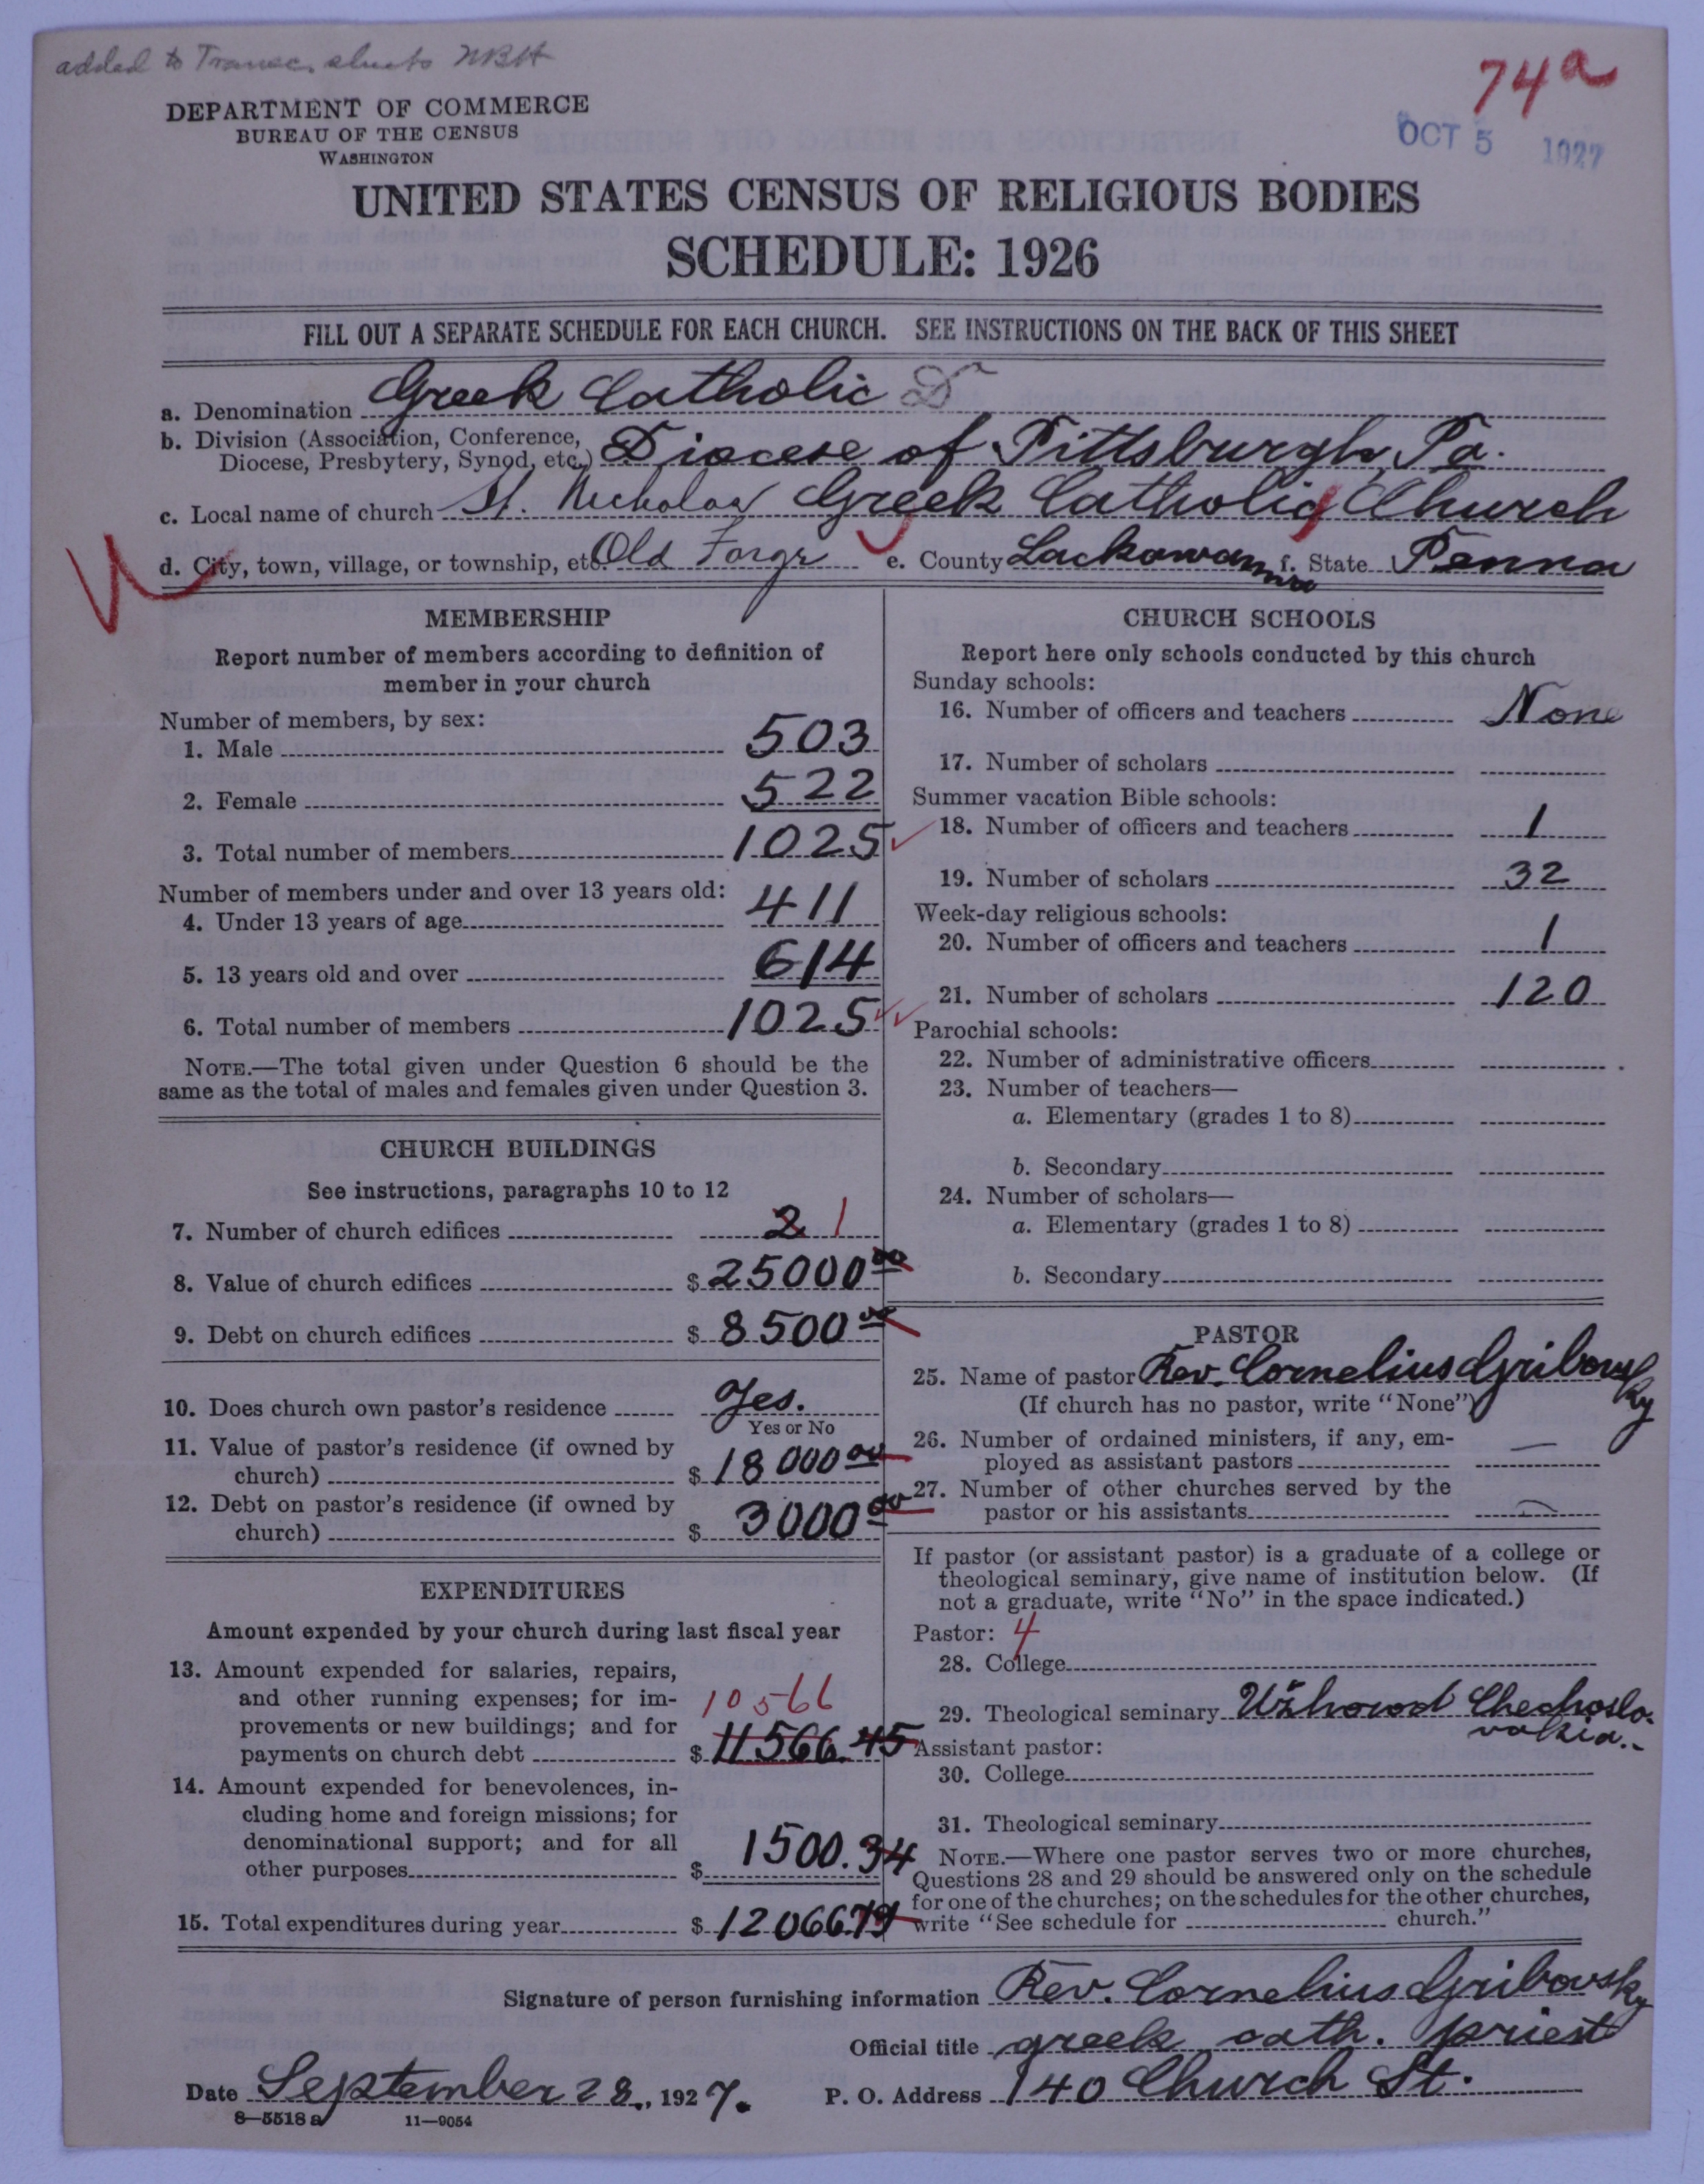 added to Transc. sheets NBH
74a
OCT 5 1927
DEPARTMENT OF COMMERCE
BUREAU OF THE CENSUS
WASHINGTON
UNITED STATES CENSUS OF RELIGIOUS BODIES
SCHEDULE: 1926
FILL OUT A SEPARATE SCHEDULE FOR EACH CHURCH. SEE INSTRUCTIONS ON THE BACK OF THIS SHEET
a. Denomination Greek Catholic D
b. Division (Association, Conference, Diocese, Presbytery, Synod, etc.) Diocese of Pittsburgh, Pa.
c. Local name of church St. Nicholas Greek Catholic Church
d. City, town, village, or township, etc. Old Forge e. County Lackawanna f. State Penna
MEMBERSHIP
Report number of members according to definition of
member in your church
Number of members, by sex:
1. Male 503
2. Female 522
3. Total number of members 1025
Number of members under and over 13 years old:
4. Under 13 years of age 411
5. 13 years old and over 614
6. Total number of members 1025
NOTE.—The total given under Question 6 should be the
same as the total of males and females given under Question 3.
CHURCH BUILDINGS
See instructions, paragraphs 10 to 12
7. Number of church edifices 2 1
8. Value of church edifices $ 25000 00
9. Debt on church edifices $ 8500 00
10. Does church own pastor's residence Yes.
Yes or No
11. Value of pastor's residence (if owned by
church) $ 18000 00
12. Debt on pastor's residence (if owned by
church) $ 3000 00
EXPENDITURES
Amount expended by your church during last fiscal year
13. Amount expended for salaries, repairs,
and other running expenses; for im-
provements or new buildings; and for 10566
payments on church debt $ 11566.45
14. Amount expended for benevolences, in-
cluding home and foreign missions; for
denominational support; and for all
other purposes $ 1500.34
15. Total expenditures during year $ 12066.79
CHURCH SCHOOLS
Report here only schools conducted by this church
Sunday schools:
16. Number of officers and teachers None
17. Number of scholars
Summer vacation Bible schools:
18. Number of officers and teachers 1
19. Number of scholars 32
Week-day religious schools:
20. Number of officers and teachers 1
21. Number of scholars 120
Parochial schools:
22. Number of administrative officers
23. Number of teachers—
a. Elementary (grades 1 to 8)
b. Secondary
24. Number of scholars—
a. Elementary (grades 1 to 8)
b. Secondary
PASTOR
25. Name of pastor Rev. Cornelius Gribovsky
(If church has no pastor, write "None")
26. Number of ordained ministers, if any, em-
ployed as assistant pastors —
27. Number of other churches served by the
pastor or his assistants —
If pastor (or assistant pastor) is a graduate of a college or
theological seminary, give name of institution below. (If
not a graduate, write "No" in the space indicated.)
Pastor: 4
28. College
29. Theological seminary Užhorod Chechoslo-
vakia.
Assistant pastor:
30. College
31. Theological seminary
NOTE.—Where one pastor serves two or more churches,
Questions 28 and 29 should be answered only on the schedule
for one of the churches; on the schedules for the other churches,
write "See schedule for church."
Signature of person furnishing information Rev. Cornelius Gribovsky
Official title greek cath. priest
Date September 28., 1927. P. O. Address 140 Church St.
8—5518 a 11—9054